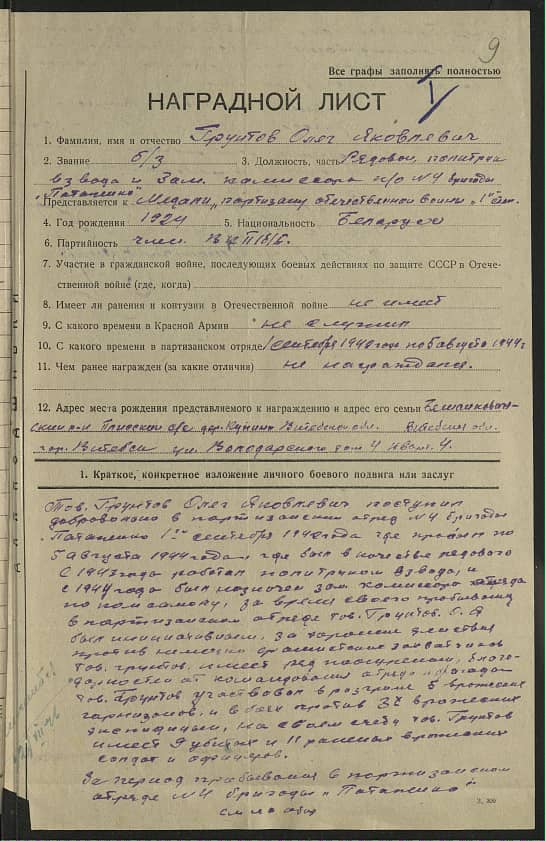 9
Все графы заполнять полностью
НАГРАДНОЙ ЛИСТ
1. Фамилия, имя и отчество Грунтов Олег Яковлевич
2. Звание б/з 3. Должность, часть Рядовой, политрук
взвода и Зам. комиссара п/о №4 бригады
"Потапенко"
Представляется к Медали "партизану отечественной войны" 1й степ.
4. Год рождения 1924 5. Национальность Беларус
6. Партийность член
7. Участие в гражданской войне, последующих боевых действиях по защите СССР в Отече-
ственной войне (где, когда)
8. Имеет ли ранения и контузии в Отечественной войне не имеет
9. С какого времени в Красной Армии не служил
10. С какого времени в партизанском отряде 1 сентября 1942 год по 5 августа 1944 г
11. Чем ранее награжден (за какие отличия) не награждался.
12. Адрес места рождения представляемого к награждению и адрес его семьи Бешенкович-
ский р-н дер. Витебской обл. Витебская обл.
гор. Витебск ул. Володарского дом 4 квот. 4.
1. Краткое, конкретное изложение личного боевого подвига или заслуг
Тов. Грунтов Олег Яковлевич поступил
добровольно в партизанский отряд №4 бригады
Потапенко 1го сентября 1942 года где пробыл по
5 августа 1944 года, где был в качестве рядового
С 1943 года работал политруком взвода, и
с 1944 года был назначен зам комиссара отряда
по комсомолу, за время своего пребывания
в партизанском отряде тов. Грунтов О. Я
был инициативным, за хорошие действия
против немецко фашистских захватчиков
тов. Грунтов имеет ряд поощрений, благо-
дарностей от командования отряда и бригады
тов. Грунтов участвовал в разгроме 5 вражеских
гарнизонов, и в боях против 32 вражеских
экспедиций, на своем счету тов. Грунтов
имеет 9 убитых и 11 раненых вражеских
солдат и офицеров.
За период пребывания в партизанском
отряде №4 бригады "Потапенко"
см на обор
З. 300